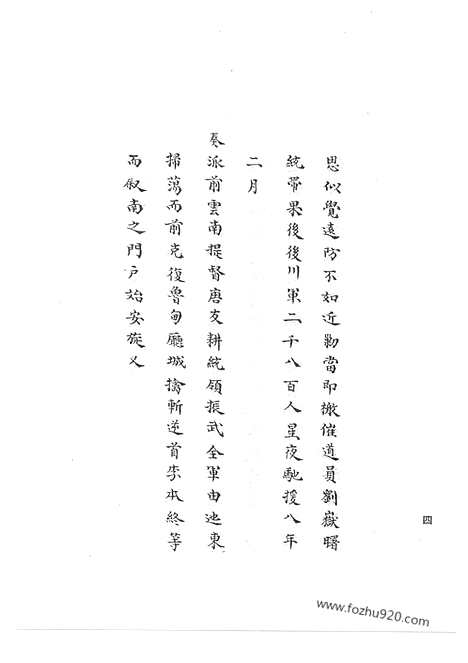 思似覺遠防不如近勦當即檄催道員劉嶽曙
統帶果後後川軍二千八百人星夜馳援八年
二月
奏派前雲南提督唐友耕統領振武全軍由迤東
掃蕩而前克復魯甸廳城擒斬逆首李本終等
而叙南之門戶始安旋又
四
www.fozhu920.com